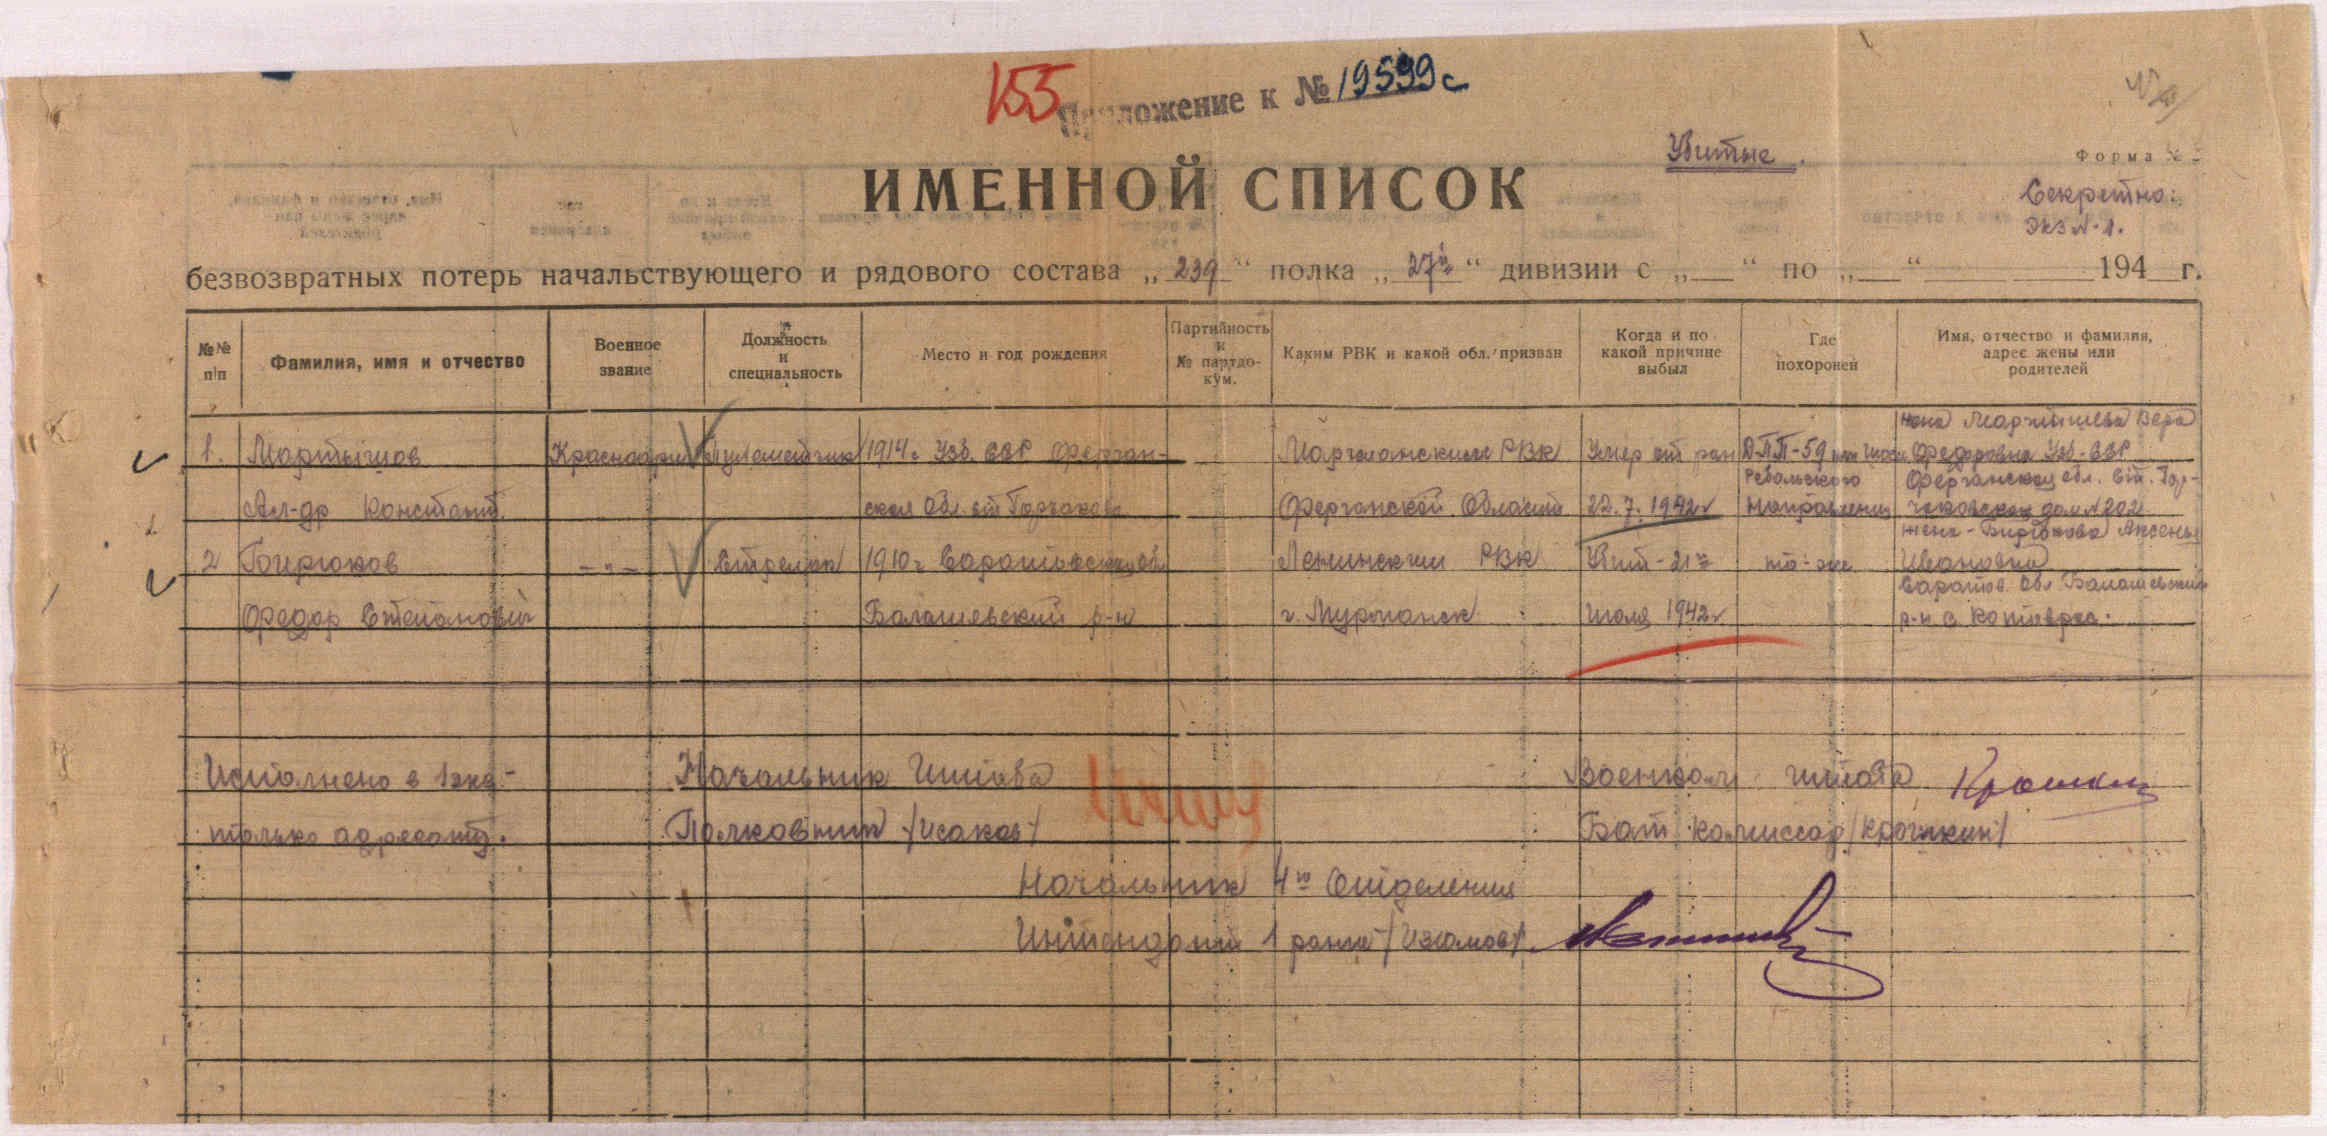 155
Приложение к № 19599с
Убитые.
Форма №
ИМЕННОЙ СПИСОК
Секретно:
Экз № 1.
безвозвратных потерь начальствующего и рядового состава „ 239 “ полка „ 27й “ дивизии с „ “ по „ “ 194 г.
№№ п/п
Фамилия, имя и отчество
Военное звание
Должность и специальность
Место и год рождения
Партийность и № партдокум.
Каким РВК и какой обл. призван
Когда и по какой причине выбыл
Где похоронен
Имя, отчество и фамилия, адрес жены или родителей
жена Мартышева Вера
1. Мартышов Красноарм Пулеметчик 1914г Узб. ССР Ферган- Маргеланским РВК Умер от ран ДПП-59 Федоровна Узб-ССР
Ребольского Ферганская обл. ст. Гор-
Ал-др Констант. ская Обл ст Горчаково Ферганской Области 22.7.1942г направления чаковская дом № 202
жена - Бирюкова Аксенья
2 Бирюков -"- Стрелок 1910г Саратовская обл Ленинским РВК Убит-21го то-же Ивановна
Саратов. Обл Балашевский
Федор Степанович Балашевский р-н г. Мурманск июля 1942г р-н с Котоврас.
Исполнено в 1экз- Начальник Штаба Военком штаба
только адресату. Полковник /Исаков/ Бат комиссар /Крошкин/
Начальник 4го Отделения
Интендант 1 ранга /Изюмов/